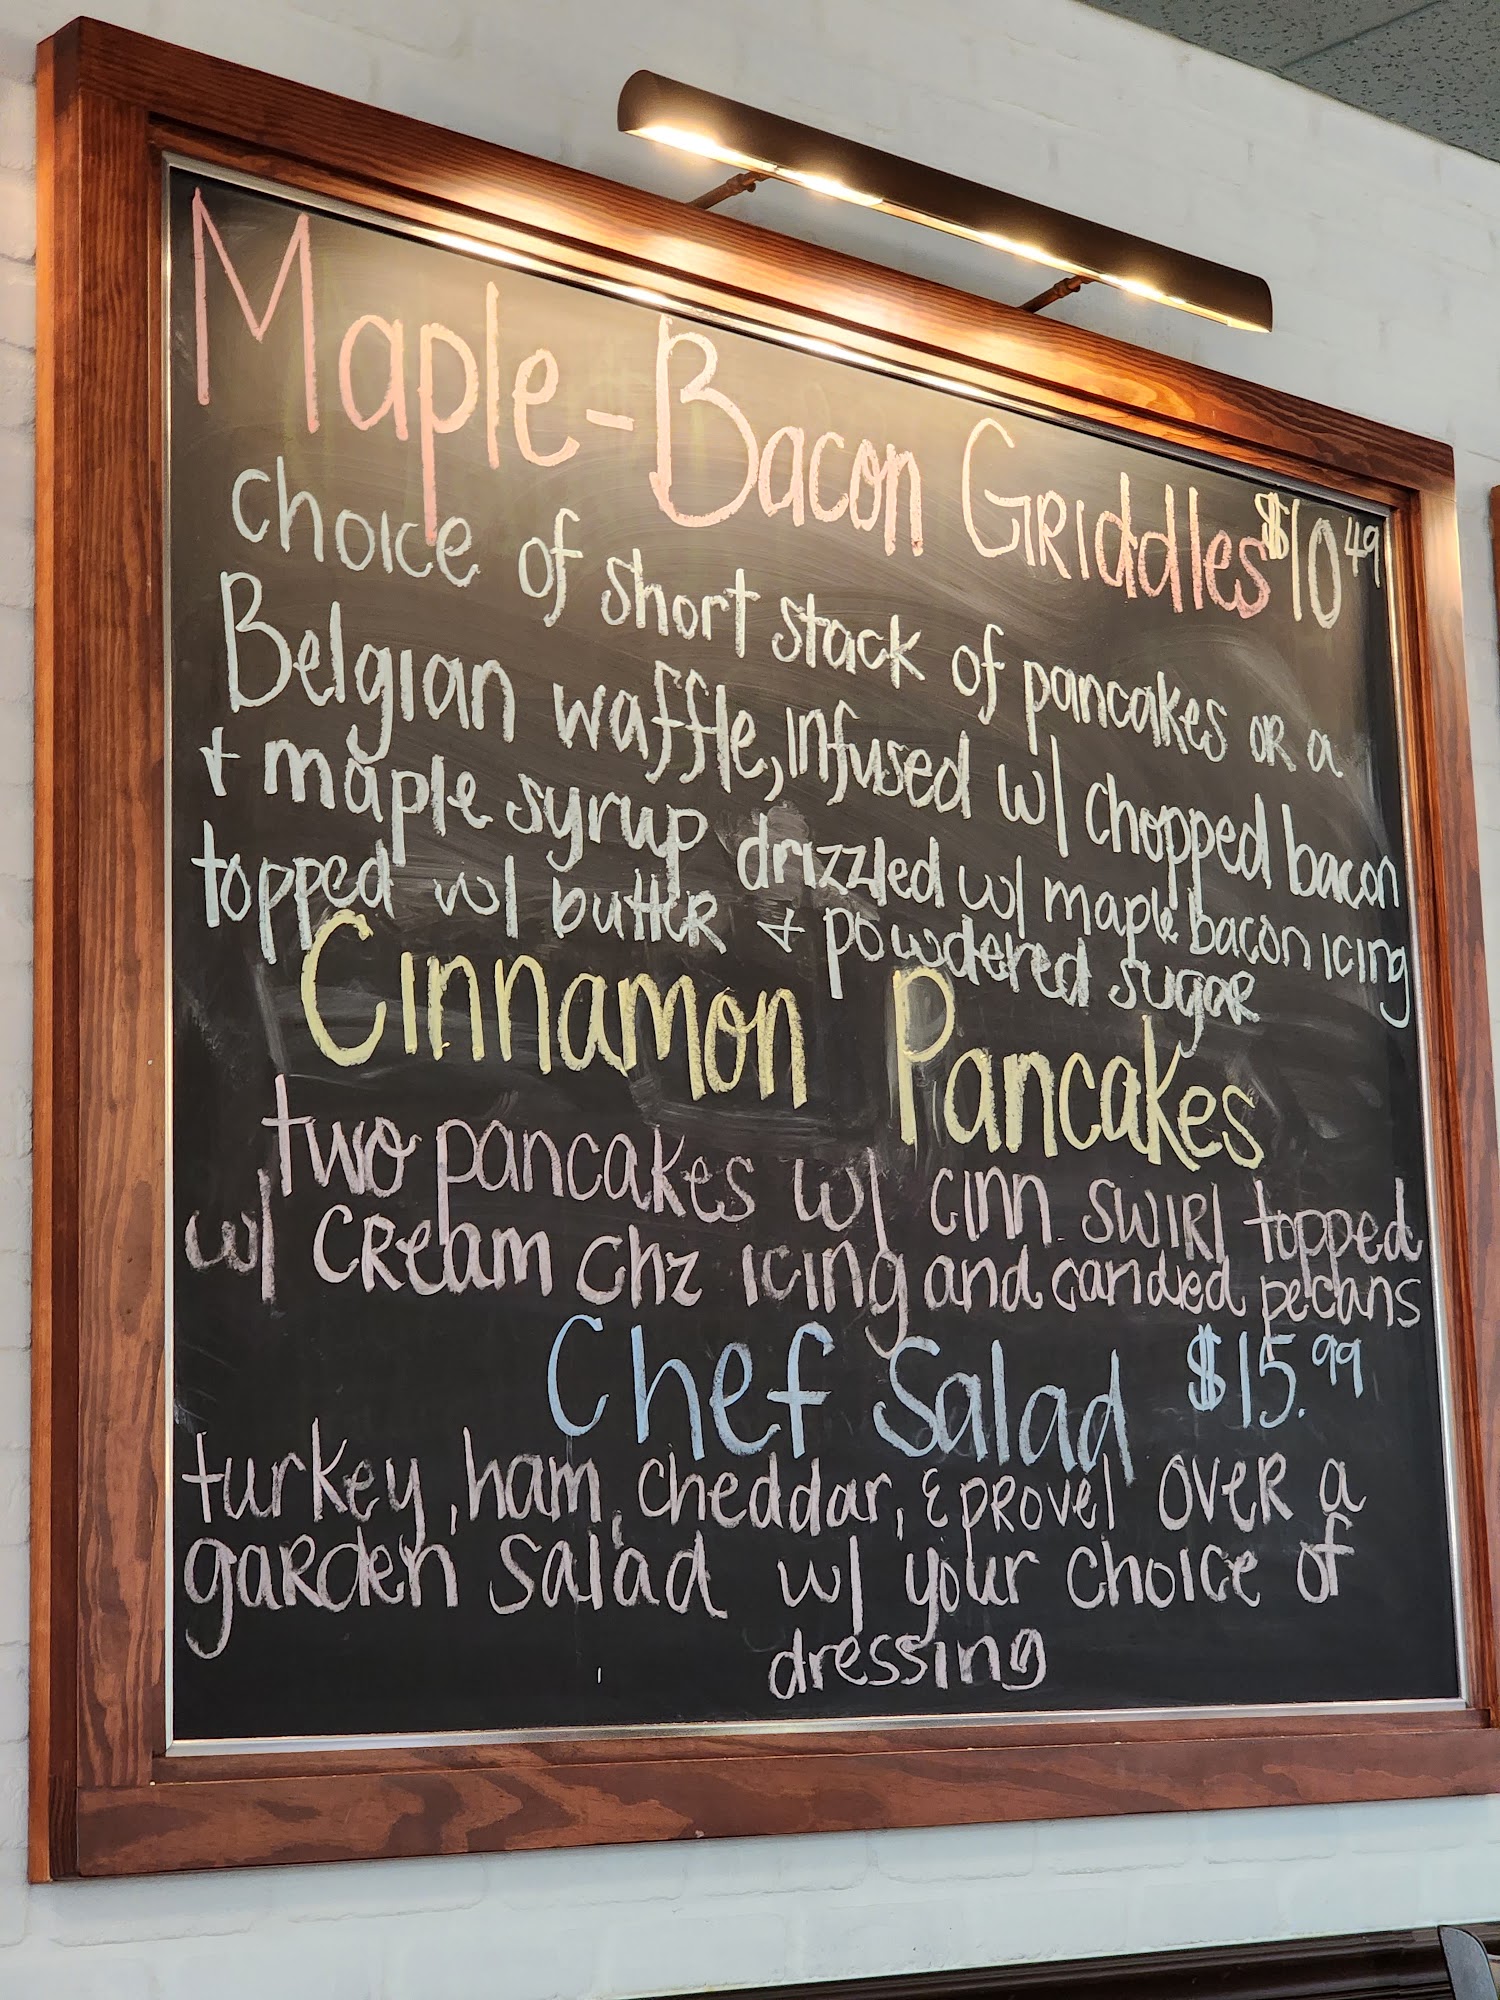 Maple-Bacon Griddles $10 49
choice of short stack of pancakes or a
Belgian waffle, infused w/ chopped bacon
+ maple syrup drizzled w/ maple bacon icing
topped w/ butter + powdered sugar
Cinnamon Pancakes
two pancakes w/ cinn swirl topped
w/ cream chz icing and candied pecans
Chef Salad $15.99
turkey, ham, cheddar, & provel over a
garden salad w/ your choice of
dressing